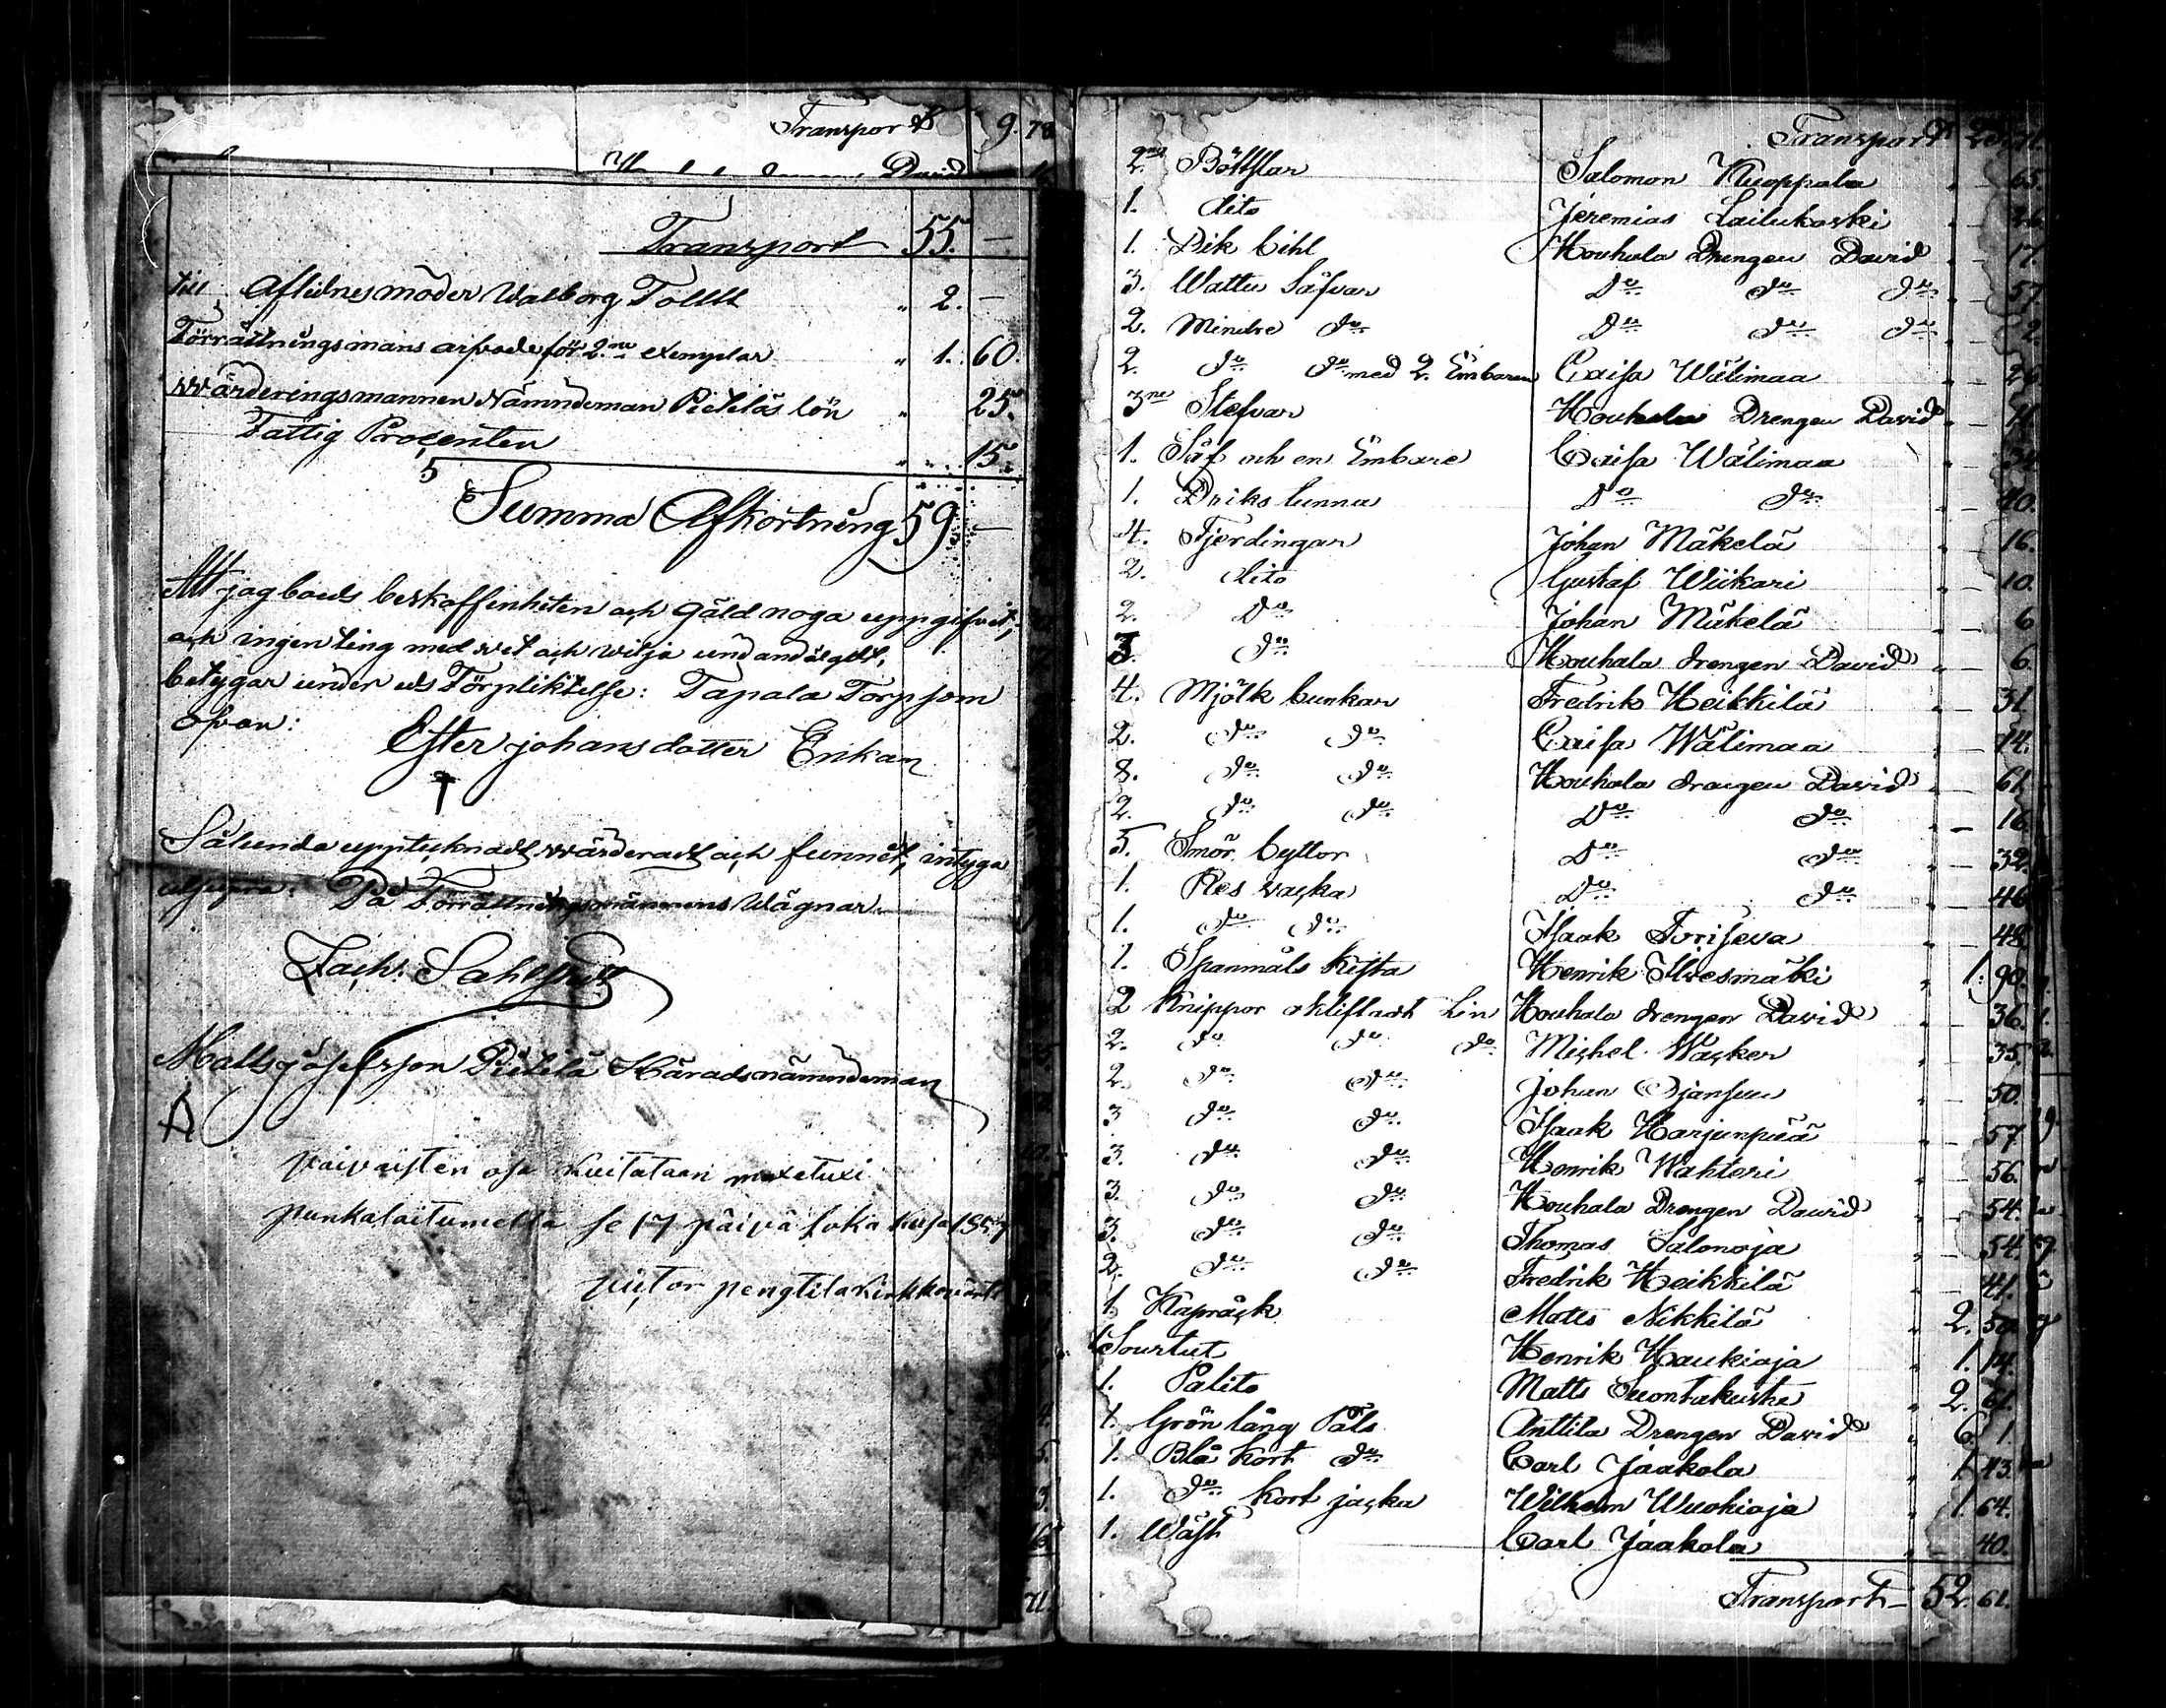 Transport 9. 78
Transport 55. —
till Aflidnes moder Walborg Tollst „ 2. —
Förrättningsmans arfvode för 2.ne exemplar „ 1. 60.
Wärderingsmannen Nämndeman Pietiläs lön „ 25.
Fattig Procenten „ „ 15.
Summa Afkortning 59 —
Att jag boets beskaffenheten och gäld noga uppgifvit,
och ingenting med vet och vilja undandålgdt,
betygar under eds Förpliktelse: Tapala Torp som
ofvan:
Ester johansdotter Enkan
Sålunda upptecknadt, wärderadt och funnit, intyga
På Förrättningsmännens Wägnar.
Zach:
Matts josefsson Pietilä Häradsnämndeman
vaivaisten osa kuitataan maxetuxi
punkalaitumella se 17 päivä loka kusa 185
pietor pengtila kirkkowärti
Transport
2ne Böttflar Salomon Kuoppala „ — 65.
1. dito Jeremias Lailukoski „ —
1. Dik bihl Kouhala Drengen David „ — 17.
3. Wattu Såfvar Do Do Do „ — 57.
2. Mindre Do Do Do Do „ — 2.
2. Do Do med 2. Embaren Caisa Wälimaa „ — 26
3ne Stefvar Kouhala Drengen David „ —
1. Såf och en Embare Caisa Wälimaa „ —
1. Driks tunna Do Do 40.
4. Fjerdingar Johan Mäkelä „ — 16.
2. dito Gustaf Wiikari „ — 10.
2. Do Johan Mäkelä „ — 6
3. Do Kouhala drengen David „ — 6.
4. Mjölk bunkar Fredrik Heikkilä „ — 31
2. Do Do Caisa Wälimaa 14.
8. Do Do Kouhala drengen David „ — 61.
2. Do Do Do Do „ — 16.
5. Smör byttor Do Do 32.
1. Res vacka Do Do 46
1. Do Do Isaak Toriseva „ — 48.
1. Spanmåls Kista Henrik Ilvesmäki „ 1. 90.
2 Knippor oklistadt Lin Kouhala drengen David „ — 36.
2. Do Do Do Michel Wacker „ — 35.
2. Do Do Johan Ojansuu „ — 50.
3 Do Do Isaak Harjunpää „ — 57.
3. Do Do Henrik Wahteri „ — 56.
3. Do Do Kouhala Drengen David „ — 54.
3. Do Do Thomas Salonoja „ — 54.
2. Do Do Fredrik Heikkilä „ — 41.
1. Kapråck Matts Nikkilä „ 2. 50.
1 Sourtut Henrik Haukioja „ 1. 14.
1. Palito Matts Suontakusta „ 2. 61.
1. Grön lång Päls Anttila Drengen David „ 6. 1.
1. Blå Kort Do Carl Jaakola „ 1. 43.
1. Do Kort jacka Wilhelm Wuokioja „ 1. 64.
1. Wäst Carl Jaakola „ — 40.
Transport 52. 61.